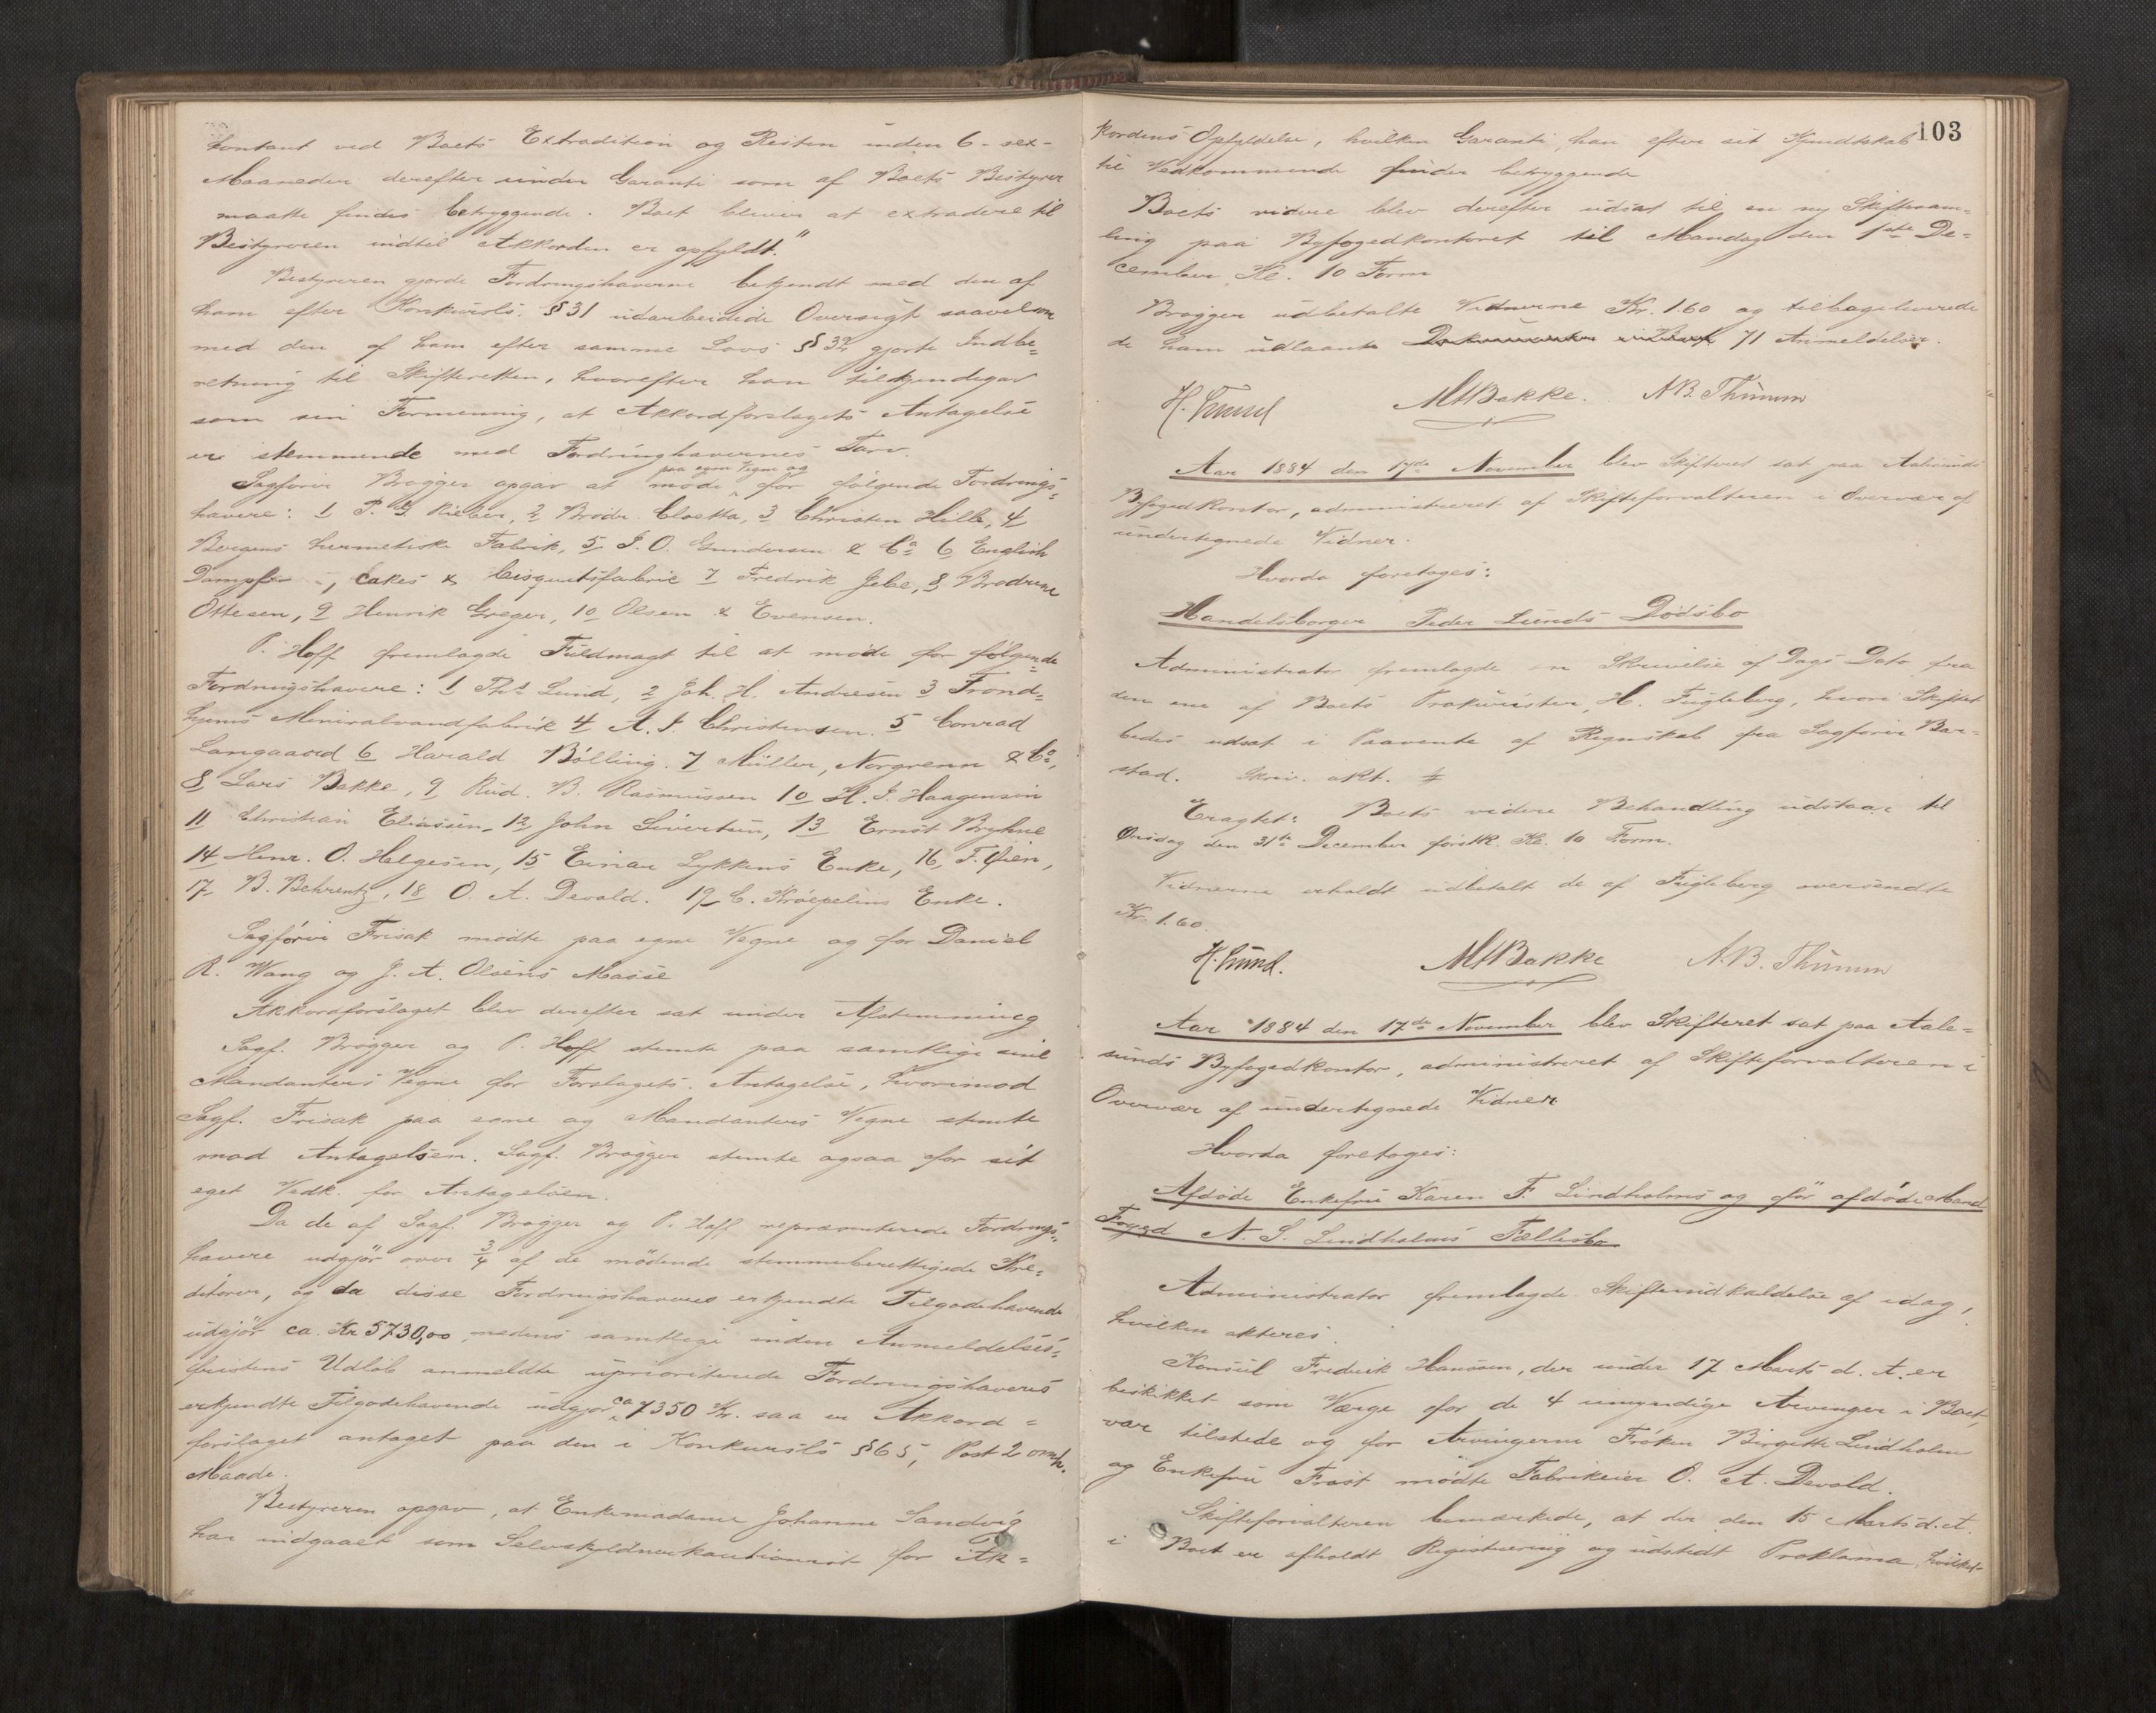 kontant ved Boets Extradition og Resten inden 6 - sex -
Maaneder derefter under Garanti som af Boets Bestyrer
maatte findes betryggende. Boet bliver at extradere til
Bestyreren indtil Akkorden er opfyldt."
Bestyreren gjorde Fordringshaverne bekjendt med den af
ham efter Konkursls. § 31 udarbeidede Oversigt saavelsom
med den af ham efter samme Lovs § 32 gjorte Indbe=
retning til Skifteretten, hvorefter han tilkjendegav
som sin Formening, at Akkordforslagets Antagelse
er stemmende med Fordringhavernes Tarv.
paa egne Vegne og
Sagfører Brøgger opgav at møde for følgende Fordrings=
havere: 1 P. G. Rieber, 2 Brødr. Cloetta, 3 Christen Hille, 4
Bergens hermetiske Fabrik, 5 J. O. Gundersen & Co 6 English
cakes & bisquitsfabrik 7 Fredrik Jebe, 8 Brødrene
Ottesen, 9 Henrik Greger, 10 Olsen & Evensen.
P. Hoff fremlagde Fuldmagt til at møde for følgende
Fordringshavere: 1 Ths Lund, 2 Joh. H. Andresen 3 Trond=
hjems Miniralvandfabrik 4 A. J. Christensen. 5 Conrad
Langaard 6 Harald Bølling. 7 Müller, Norgrenn & Co,
8 Lars Bakke, 9 Rud. B. Rasmussen 10 H. J. Haagensen
11 Christian Eliassen, 12 John Sivertsen, 13 Ernst Bryhne
14 Henr. O. Helgesen, 15 Einar Lykkens Enke, 16, F. Øien,
17 B. Behrentz, 18 O. A. Devold. 19 C. Krøepelins Enke.
Sagfører Frisak mødte paa egne Vegne og for Daniel
R. Wang og J. A. Olsens Masse
Akkordforslaget blev derefter sat under Afstemming
Sagf. Brøgger og P. Hoff stemte paa samtlige sine
Mandanters Vegne for Forslagets Antagelse, hvorimod
Sagf. Frisak paa egne og Mandanters Vegne stemte
mod Antagelsen. Sagf. Brøgger stemte ogsaa for sit
eget Vedk. for Antagelsen.
Da de af Sagf. Brøgger og P. Hoff repræsenterede Fordrings=
havere udgjør over 3/4 af de mødende stemmeberettigede Kre=
ditorer, og da disse Fordringshaveres erkjendte Tilgodehavende
udgjør ca. Kr 5730,00 medens samtlige inden Anmeldelses=
fristens Udløb anmeldte uprioriterede Fordringshaveres
erkjendte Tilgodehavende udgjør ca 7350 Kr. saa er Akkord=
forslaget antaget paa den i Konkursls § 65, Post 2 omh.
Maade.
Bestyreren opgav, at Enkemadame Johanne Sandvig
har indgaaet som Selvskyldnerkautionist for Ak=
103
kordens Opfyldelse, hvilken Garanti han efter sit Kjendtskab
til Vedkommende finder betryggende
Boets videre blev derefter udsat til en ny Skiftesam=
ling paa Byfogedkontoret til Mandag den 1ste De=
cember, Kl. 10 Form
Brøgger udbetalte Vidnerne Kr. 1.60 og tilbageleverede
de ham udlaante 71 Anmeldelser.
H. Lund MHBakke. N.B. Thumm
Aar 1884 den 17de November blev Skifteret sat paa Aalesunds
Byfogedkontor, administreret af Skifteforvalteren i Overvær af
undertegnede Vidner.
Hvorda foretoges:
Handelsborger Peder Lunds Dødsbo
Administrator fremlagde en Skrivelse af Dags Dato fra
den ene af Boets Prokurister, H. Fugleberg, hvori Skiftet
bedes udsat i Paavente af Regnskab fra Sagfører Bar=
stad. Skriv. akt.
Eragtet: Boets videre Behandling udstaar til
Onsdag den 31te December førstk. Kl. 10 Form.
Vidnerne erholdt udbetalt de af Fugleberg oversendte
Kr. 1.60.
H. Lund. MHBakke N.B. Thumm
Aar 1884 den 17de November blev Skifteret sat paa Aale=
sunds Byfogedkontor, administreret af Skifteforvalteren i
Overvær af undertegnede Vidner
Hvorda foretoges:
Afdøde Enkefru Karen F. Lindholms og før afdøde Mand
Foged N. S. Lindholms Fællesbo
Administrator fremlagde Skifteindkaldelse af idag,
hvilken akteres.
Konsul Fredrik Hanssen, der under 17 Marts d. A. er
beskikket som Værge for de 4 umyndige Arvinger i Boet,
var tilstede og for Arvingerne Frøken Birgitte Lindholm
og Enkefru Frost mødte Fabrikeier O. A. Devold.
Skifteforvalteren bemærkede, at der den 15 Marts d. A.
i Boet er afholdt Registrering og udstedt Proklama, hvilket